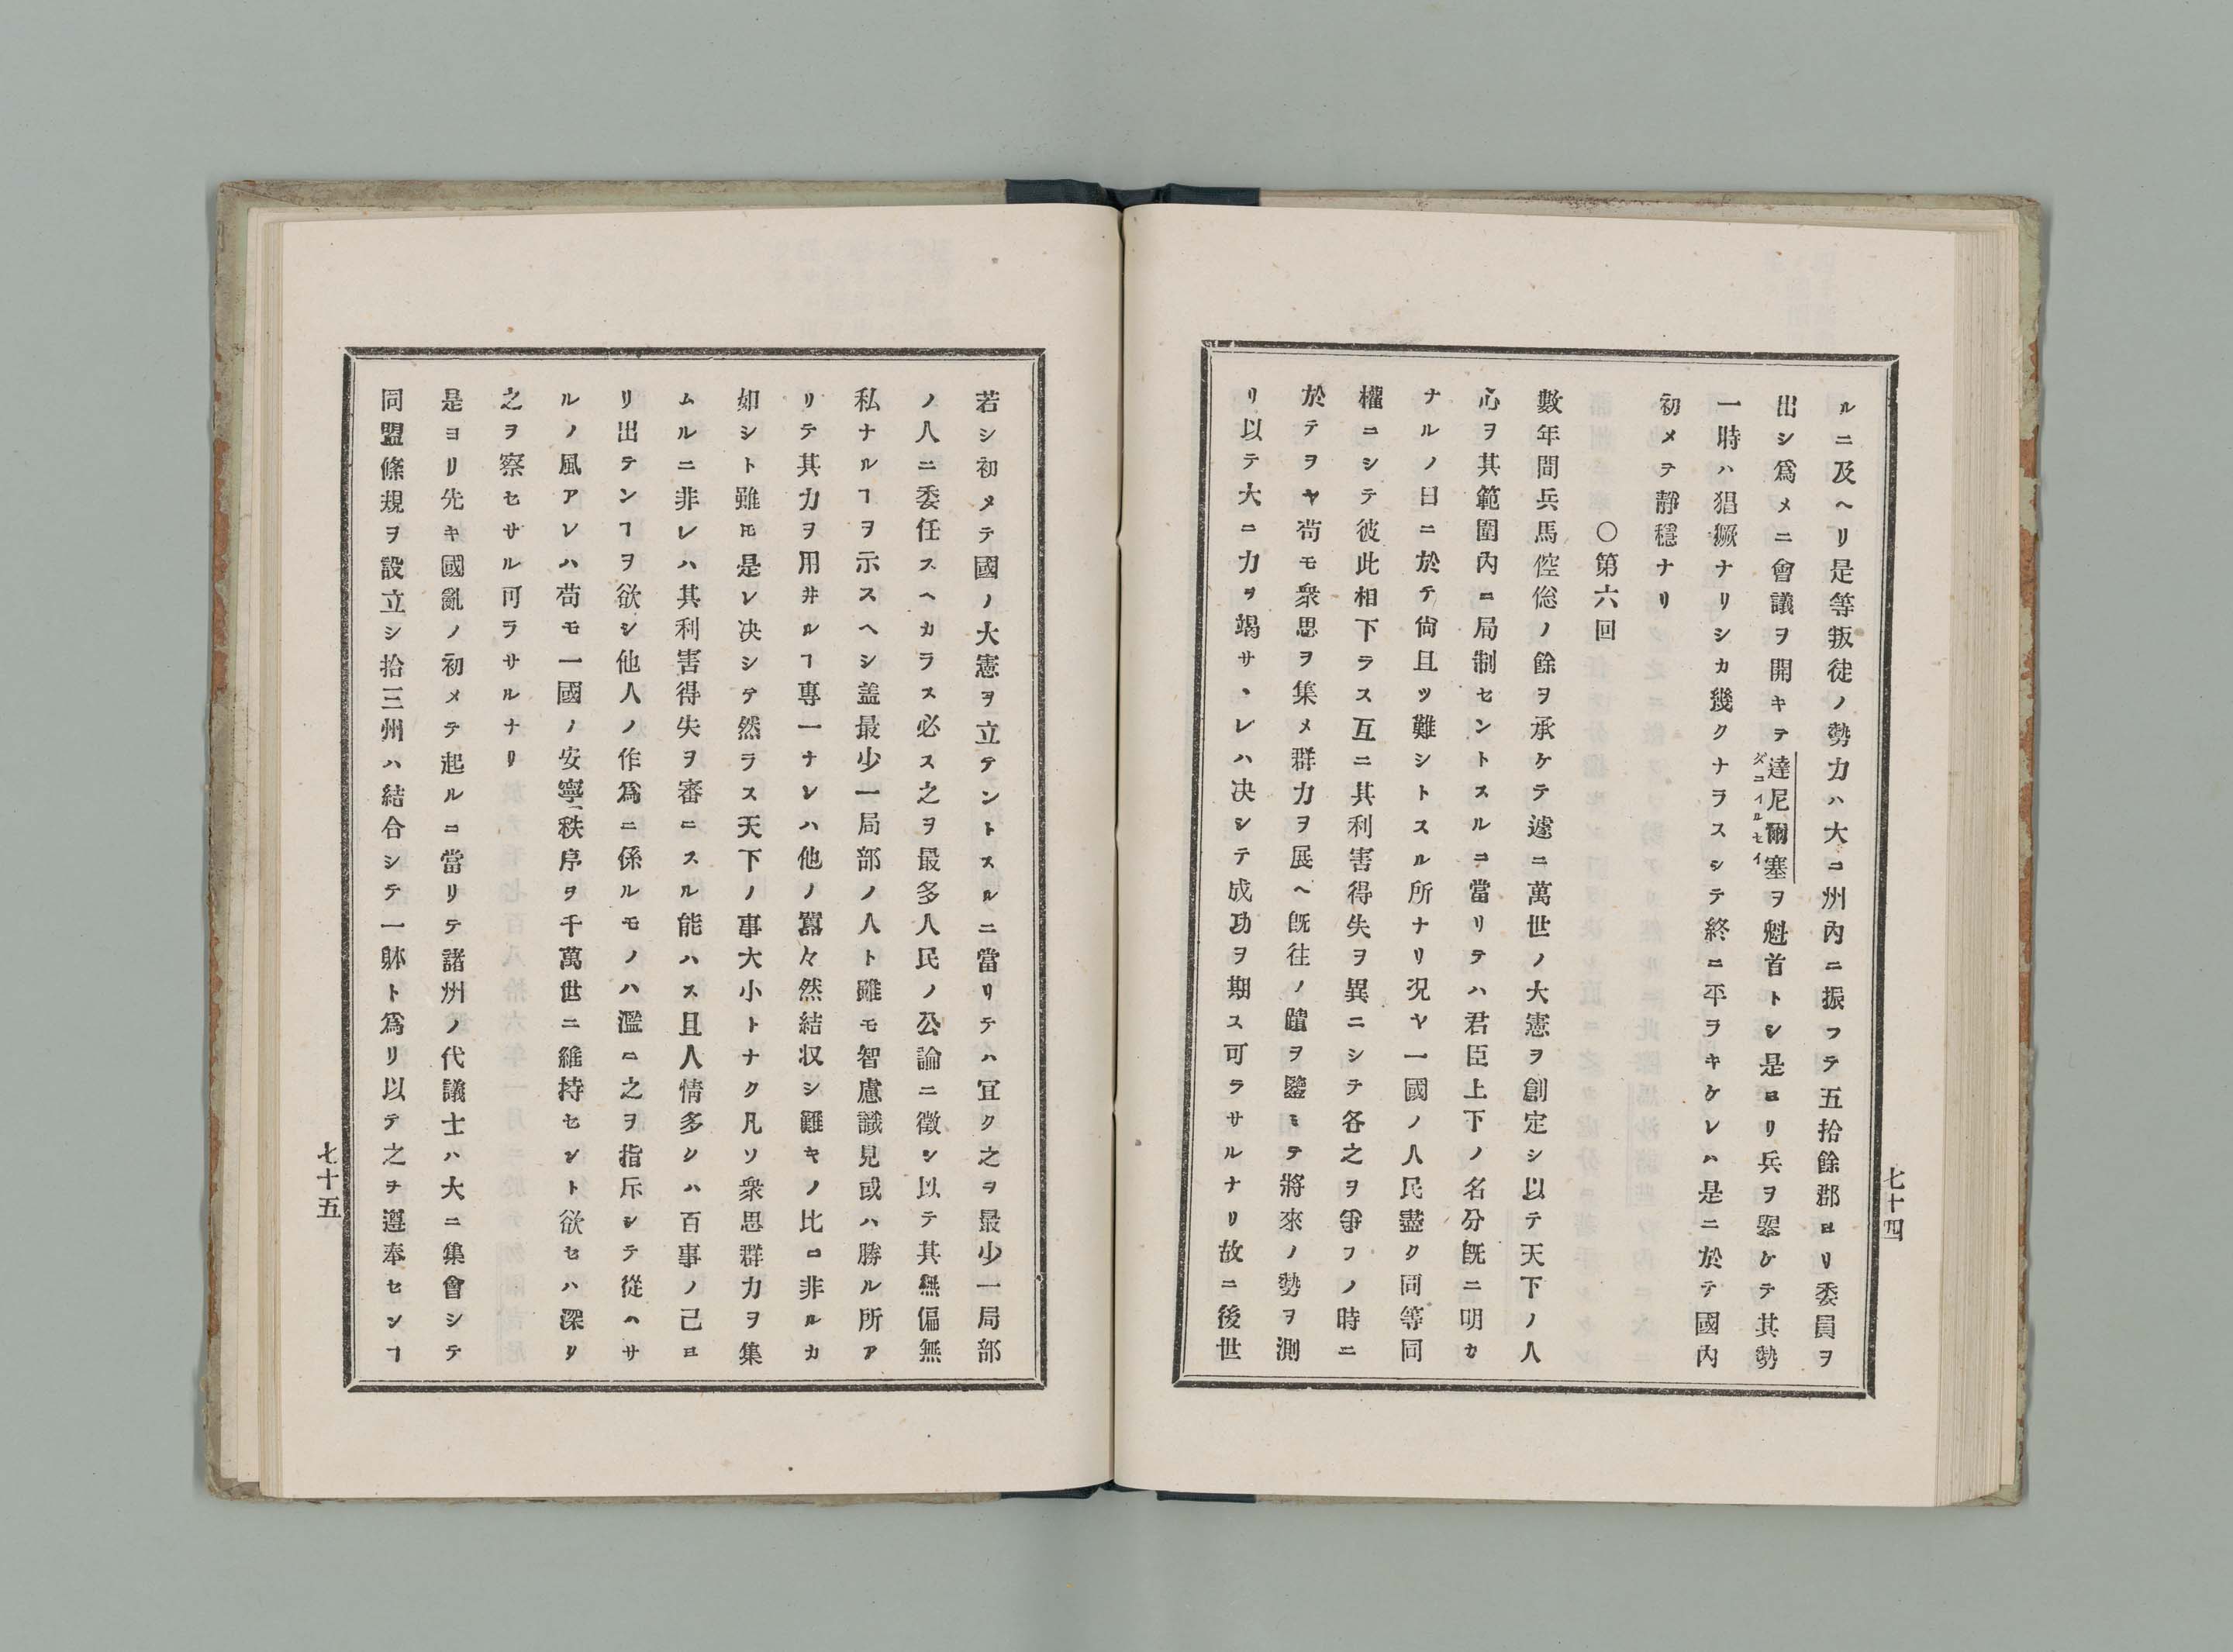 ルニ及ヘリ是等叛徒ノ勢力ハ大ニ州內ニ振フテ五拾餘郡ヨリ委員ヲ
出シ爲メニ會議ヲ開キテ達尼爾塞ヲ魁首トシ是ヨリ兵ヲ擧ケテ其勢
ダニイルセイ
一時ハ猖獗ナリシカ幾クナラスシテ終ニ平ヲキケレハ是ニ於テ國內
初メテ靜穩ナリ
〇第六回
數年間兵馬倥偬ノ餘ヲ承ケテ遽ニ萬世ノ大憲ヲ創定シ以テ天下ノ人
心ヲ其範圍內ニ局制セントスルニ當リテハ君臣上下ノ名分旣ニ明カ
ナルノ日ニ於テ尙且ツ難シトスル所ナリ况ヤ一國ノ人民盡ク同等同
權ニシテ彼此相下ラス互ニ其利害得失ヲ異ニシテ各之ヲ爭フノ時ニ
於テヲヤ苟モ衆思ヲ集メ群力ヲ展ヘ旣往ノ蹟ヲ鑒ミテ將來ノ勢ヲ測
リ以テ大ニ力ヲ竭サヽレハ决シテ成功ヲ期ス可ラサルナリ故ニ後世
七十四
若シ初メテ國ノ大憲ヲ立テントスルニ當リテハ宜ク之ヲ最少一局部
ノ人ニ委任スヘカラス必ス之ヲ最多人民ノ公論ニ徵シ以テ其無偏無
私ナルヿヲ示スヘシ盖最少一局部ノ人ト雖モ智慮識見或ハ勝ル所ア
リテ其力ヲ用井ルヿ專一ナレハ他ノ囂々然結収シ難キノ比ニ非ルカ
如シト雖𪜈是レ决シテ然ラス天下ノ事大小トナク凡ソ衆思群力ヲ集
ムルニ非レハ其利害得失ヲ審ニスル能ハス且人情多クハ百事ノ己ヨ
リ出テンヿヲ欲シ他人ノ作爲ニ係ルモノハ濫ニ之ヲ指斥シテ從ハサ
ルノ風アレハ苟モ一國ノ安寧秩序ヲ千萬世ニ維持セント欲セハ深ク
之ヲ察セサル可ラサルナリ
是ヨリ先キ國亂ノ初メテ起ルニ當リテ諸州ノ代議士ハ大ニ集會シテ
同盟條規ヲ設立シ拾三州ハ結合シテ一躰ト爲リ以テ之ヲ遵奉センヿ
七十五